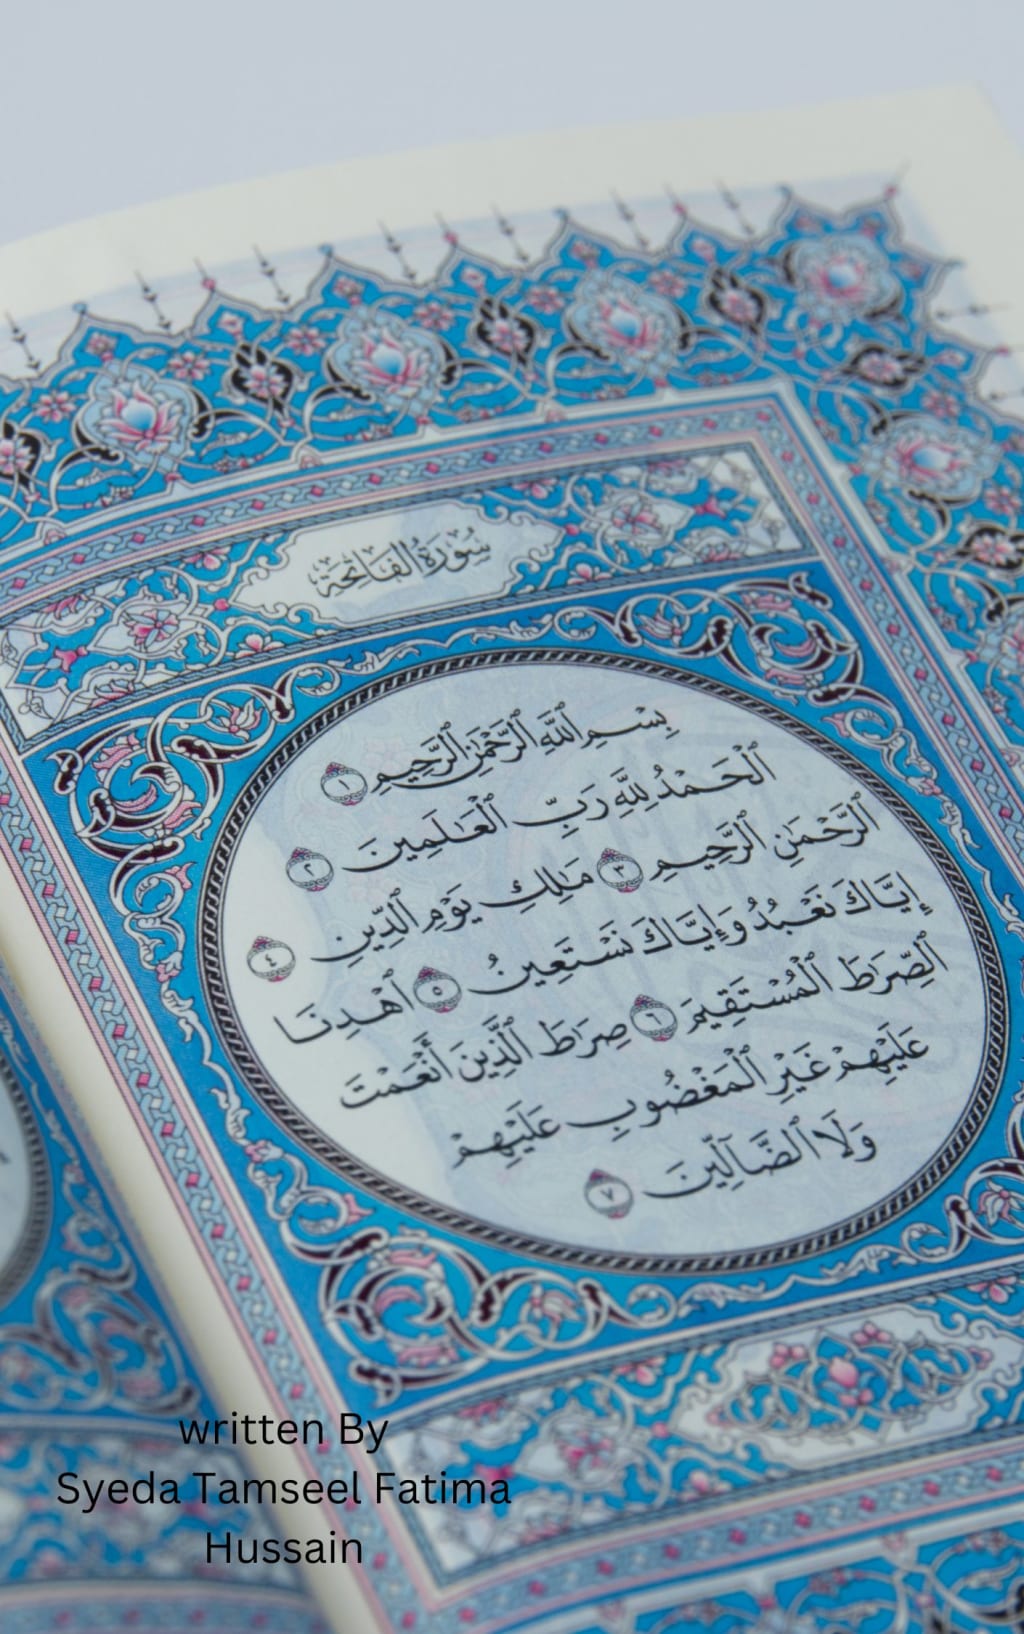 سُورَةُ الفَاتِحَة
بِسْمِ ٱللَّهِ ٱلرَّحْمَٰنِ ٱلرَّحِيمِ ١
ٱلْحَمْدُ لِلَّهِ رَبِّ ٱلْعَٰلَمِينَ ٢
ٱلرَّحْمَٰنِ ٱلرَّحِيمِ ٣ مَٰلِكِ يَوْمِ ٱلدِّينِ ٤
إِيَّاكَ نَعْبُدُ وَإِيَّاكَ نَسْتَعِينُ ٥ ٱهْدِنَا
ٱلصِّرَٰطَ ٱلْمُسْتَقِيمَ ٦ صِرَٰطَ ٱلَّذِينَ أَنْعَمْتَ
عَلَيْهِمْ غَيْرِ ٱلْمَغْضُوبِ عَلَيْهِمْ
وَلَا ٱلضَّآلِّينَ ٧
written By
Syeda Tamseel Fatima
Hussain